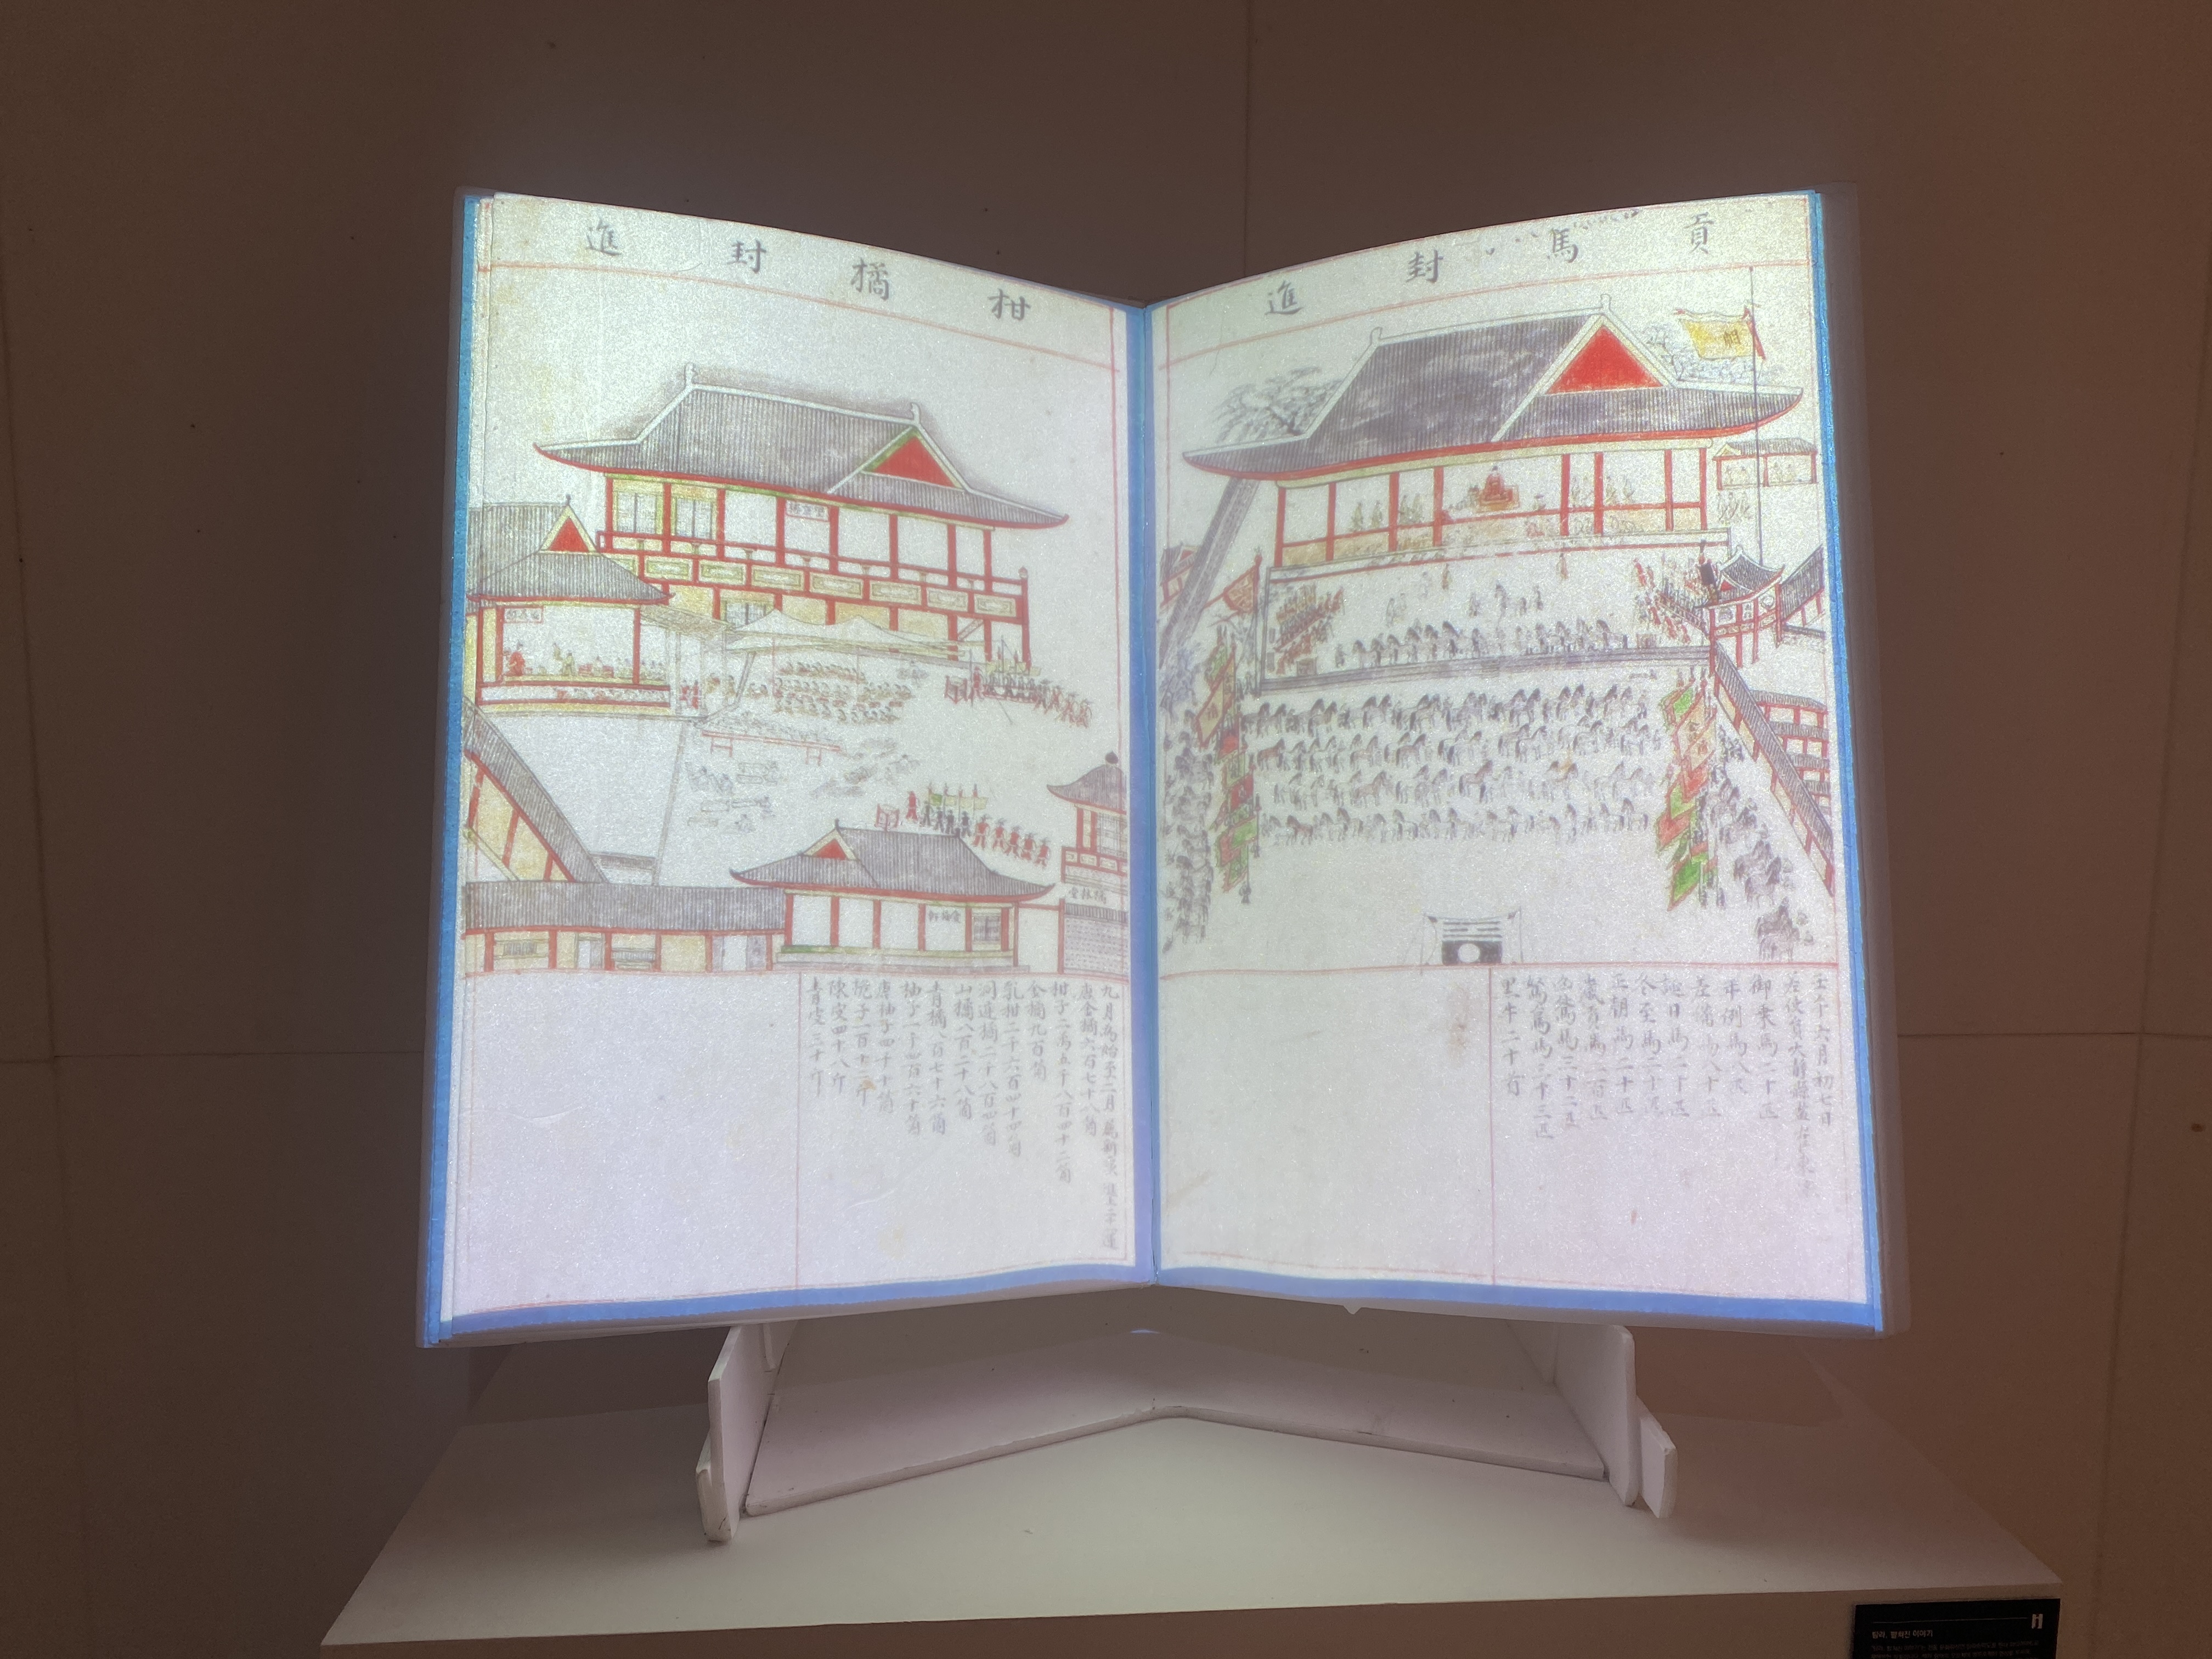 貢馬封進
壬午六月初七日
差使員大靜縣監崔東
御乘馬二十匹
年例馬八匹
差備馬八十匹
誕日馬二十匹
冬至馬二十匹
正朝馬二十匹
歲貢馬二百匹
馬三十二匹
馬三十三匹
黑牛二十首
柑橘封進
九月爲始至二月 薦新及 進上二十運
唐金橘六百七十八箇
柑子二萬五千八百四十二箇
金橘九百箇
乳柑二千六百四十四箇
洞庭橘二千八百四箇
山橘八百二十八箇
青橘八百七十六箇
柚子一千四百六十箇
唐柚子四千十箇
梔子一百十二斤
陳皮四十八斤
青皮三十斤
望京樓
愛梅軒
橘林堂
탐라, 펼쳐진 이야기